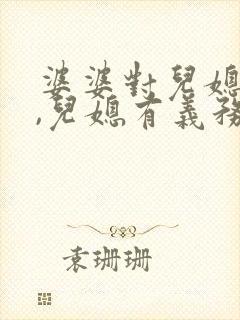 婆婆對兒媳
,兒媳有義務
袁珊珊